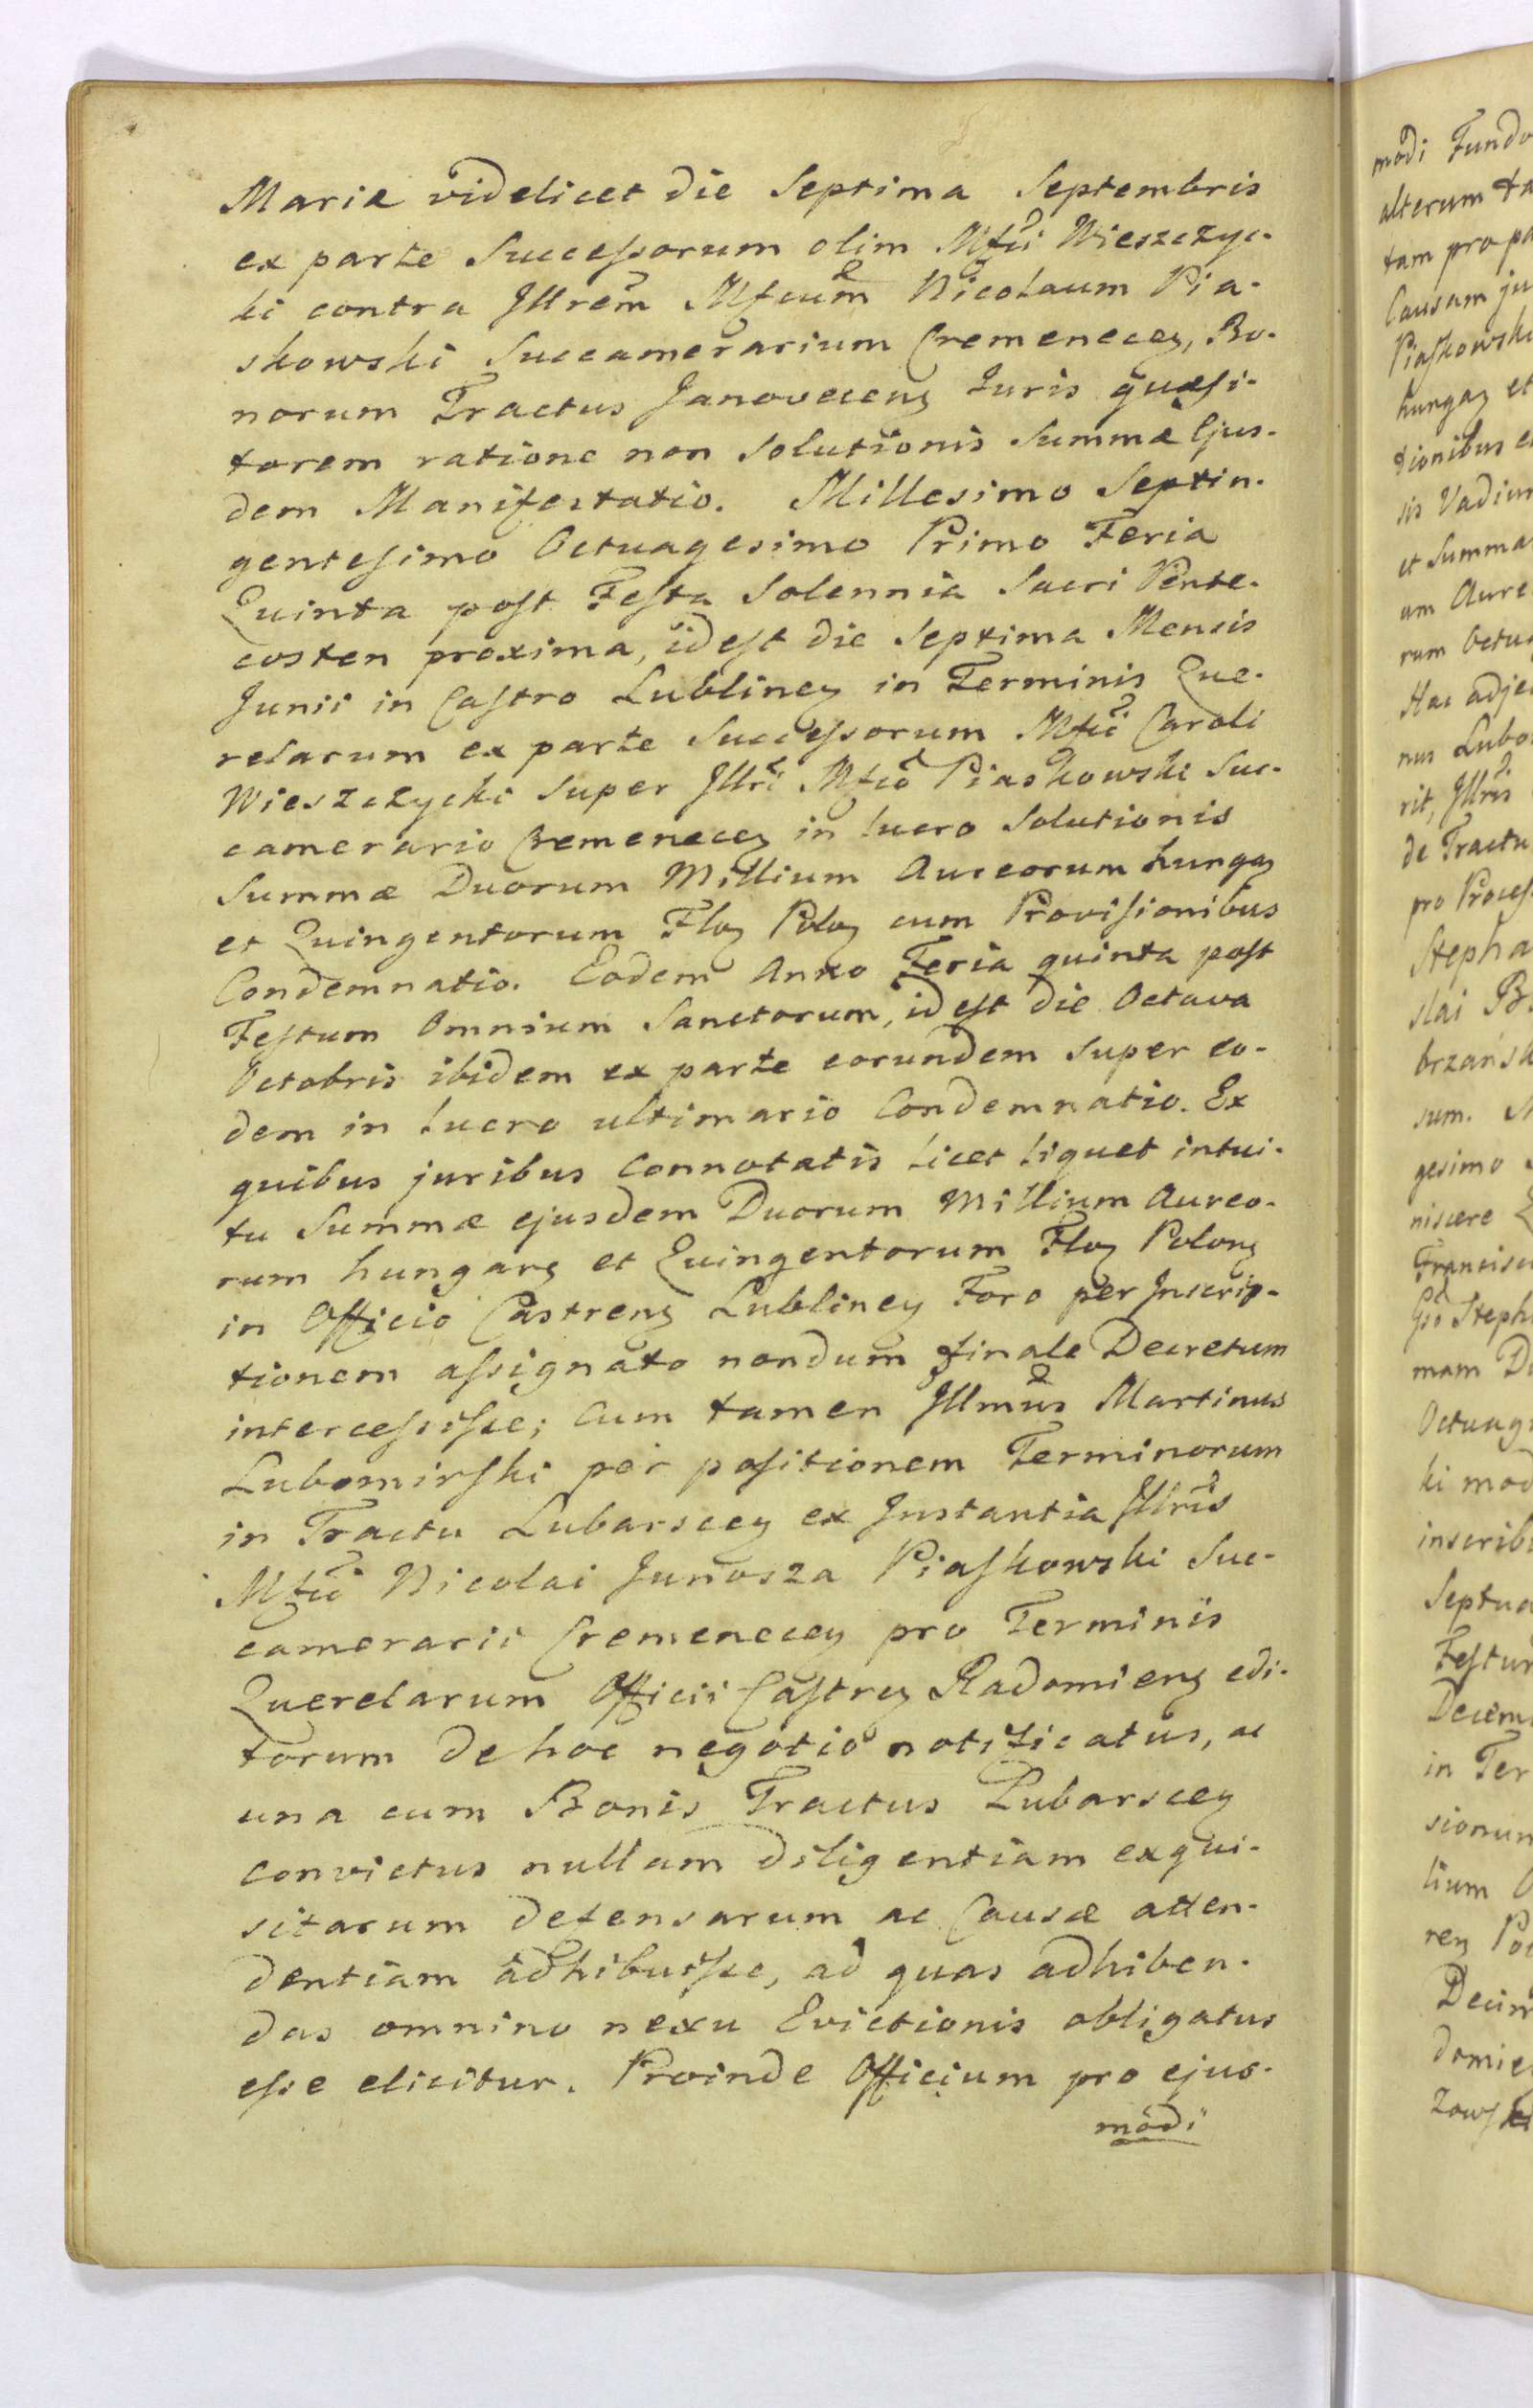 Mariæ videlicet die Septima Septembris
ex parte Successorum olim Mfci Wieszczyc-
ki contra Illrem Mfcum Nicolaum Pia-
skowski Succamerarium Cremenecen, Bo-
norum Tractus Janovecens Juris quæsi-
torem ratione non Solutionis Summæ Ejus-
dem Manifestatio. Millesimo Septin-
gentesimo Octuagesimo Primo Feria
Quinta post Festa Solennia Sacri Pente-
costen proxima, idest die Septima Mensis
Junii in Castro Lublinen in Terminis Que-
relarum ex parte Successorum Mfci Caroli
Wieszczycki Super Illri Mfco Piaskowski Suc-
camerario Cremenecen in lucro Solutionis
Summæ Duorum Millium Aureorum hungaz
et Quingentorum Floz Poloz cum Provisionibus
Condemnatio. Eodem Anno Feria quinta post
Festum Omnium Sanctorum, idest die Octava
Octobris ibidem ex parte eorundem Super eo-
dem in lucro ultimario Condemnatio. Ex
quibus juribus Connotatis licet liquet intui-
tu Summæ ejusdem Duorum Millium Aureo-
rum hungarz et Quingentorum Floz Polonz
in Officio Castrens Lublinen Foro per Inscrip-
tionem assignato nondum finale Decretum
intercessisse; Cum tamen Illmus Martinus
Lubomirski per positionem Terminorum
in Tractu Lubarscen ex Instantia Illris
Mfci Nicolai Junosza Piaskowski Suc-
camerarii Cremenecen pro Terminis
Querelarum Officii Castren Radomiens edi-
torum de hoc negotio notificatus, ac
una cum Bonis Tractus Lubarscen
convictus nullam diligentiam exqui-
sitarum defensarum ac Causæ atten-
dentiam adhibuisse, ad quas adhiben-
das omnino nexu Evictionis obligatus
esse elicitur. Proinde Officium pro ejus-
modi
modi Fundo
alterum ta
tam pro pa
Causam ju
Piaskowski
hungaz et
tionibus e
sis Vadium
et Summa
um Aure
rum Octua
Hac adjec
nus Lubo
rit, Illris
de Tractu
pro Process
Stepha
slai B
brzańs
sum.
gesimo
niscere
Francisc
Gso Steph
mam Du
Octuag
ki mod
inscrib
Septua
Festum
Decem
in Ter
sionum
lium
ren Po
Decim
domie
zowsk